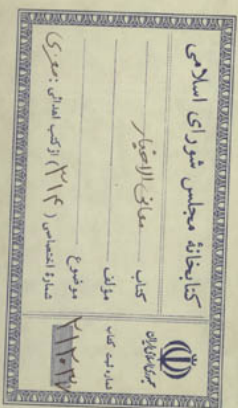 کتابخانهٔ مجلس شورای اسلامی
کتاب معانی الاخبار
مؤلف
موضوع
شمارهٔ اختصاصی ( ۳۱۴ ) از کتب اهدائی :
جمهوری اسلامی ایران
شماره ثبت کتاب